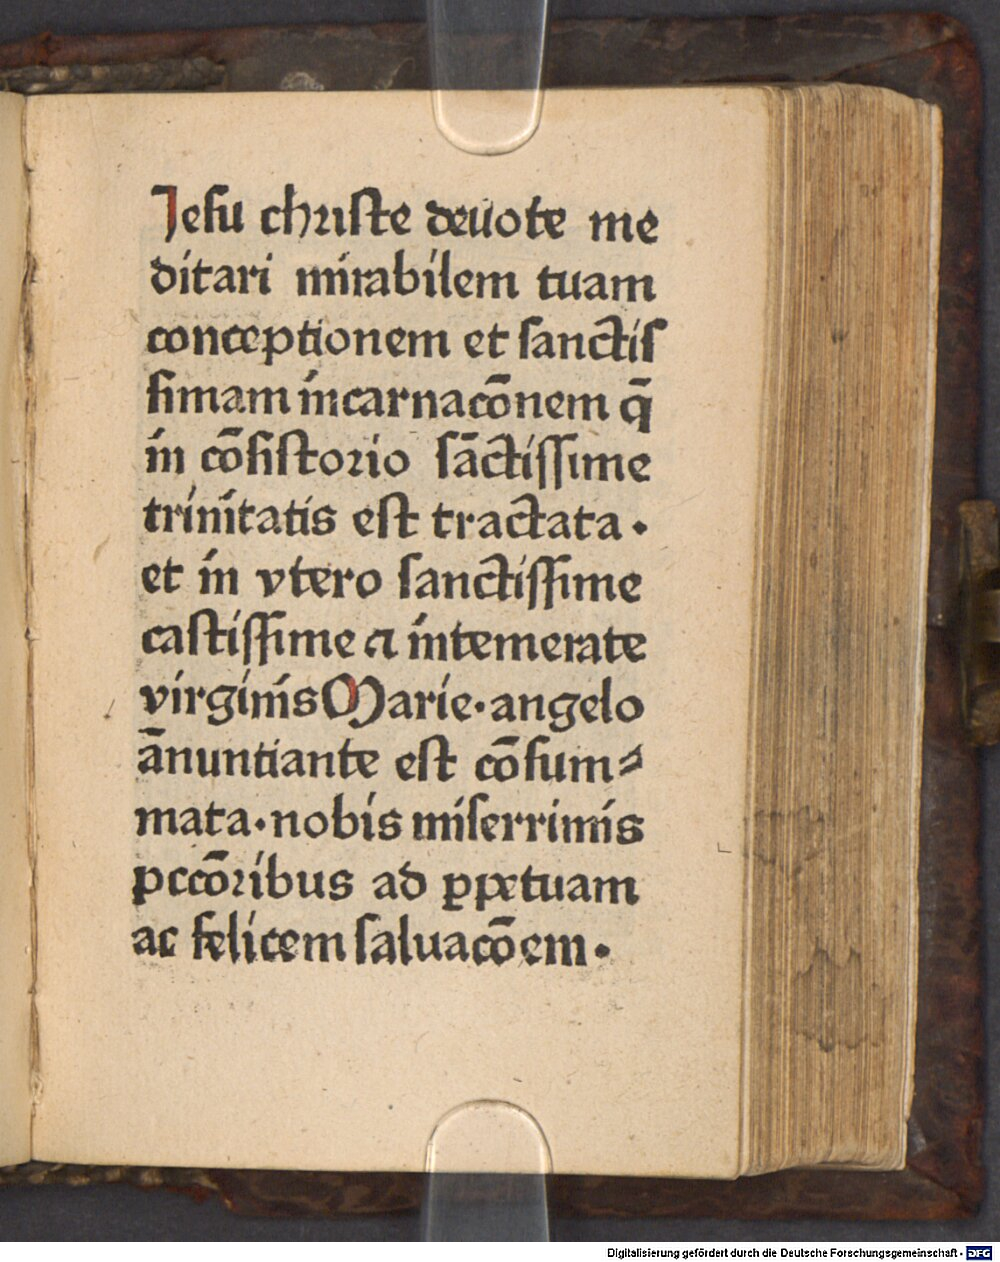 Jesu christe deuote me
ditari mirabilem tuam
conceptionem et sanctis
simam incarnacōnem q̄
in cōsistorio sāctissime
trinitatis est tractata ·
et in vtero sanctissime
castissime ⁊ intemerate
virginis Marie · angelo
ānuntiante est cōsum⸗
mata · nobis miserrimis
pccōribus ad ꝑpetuam
ac felicem saluacōem ·
Digitalisierung gefördert durch die Deutsche Forschungsgemeinschaft - DFG